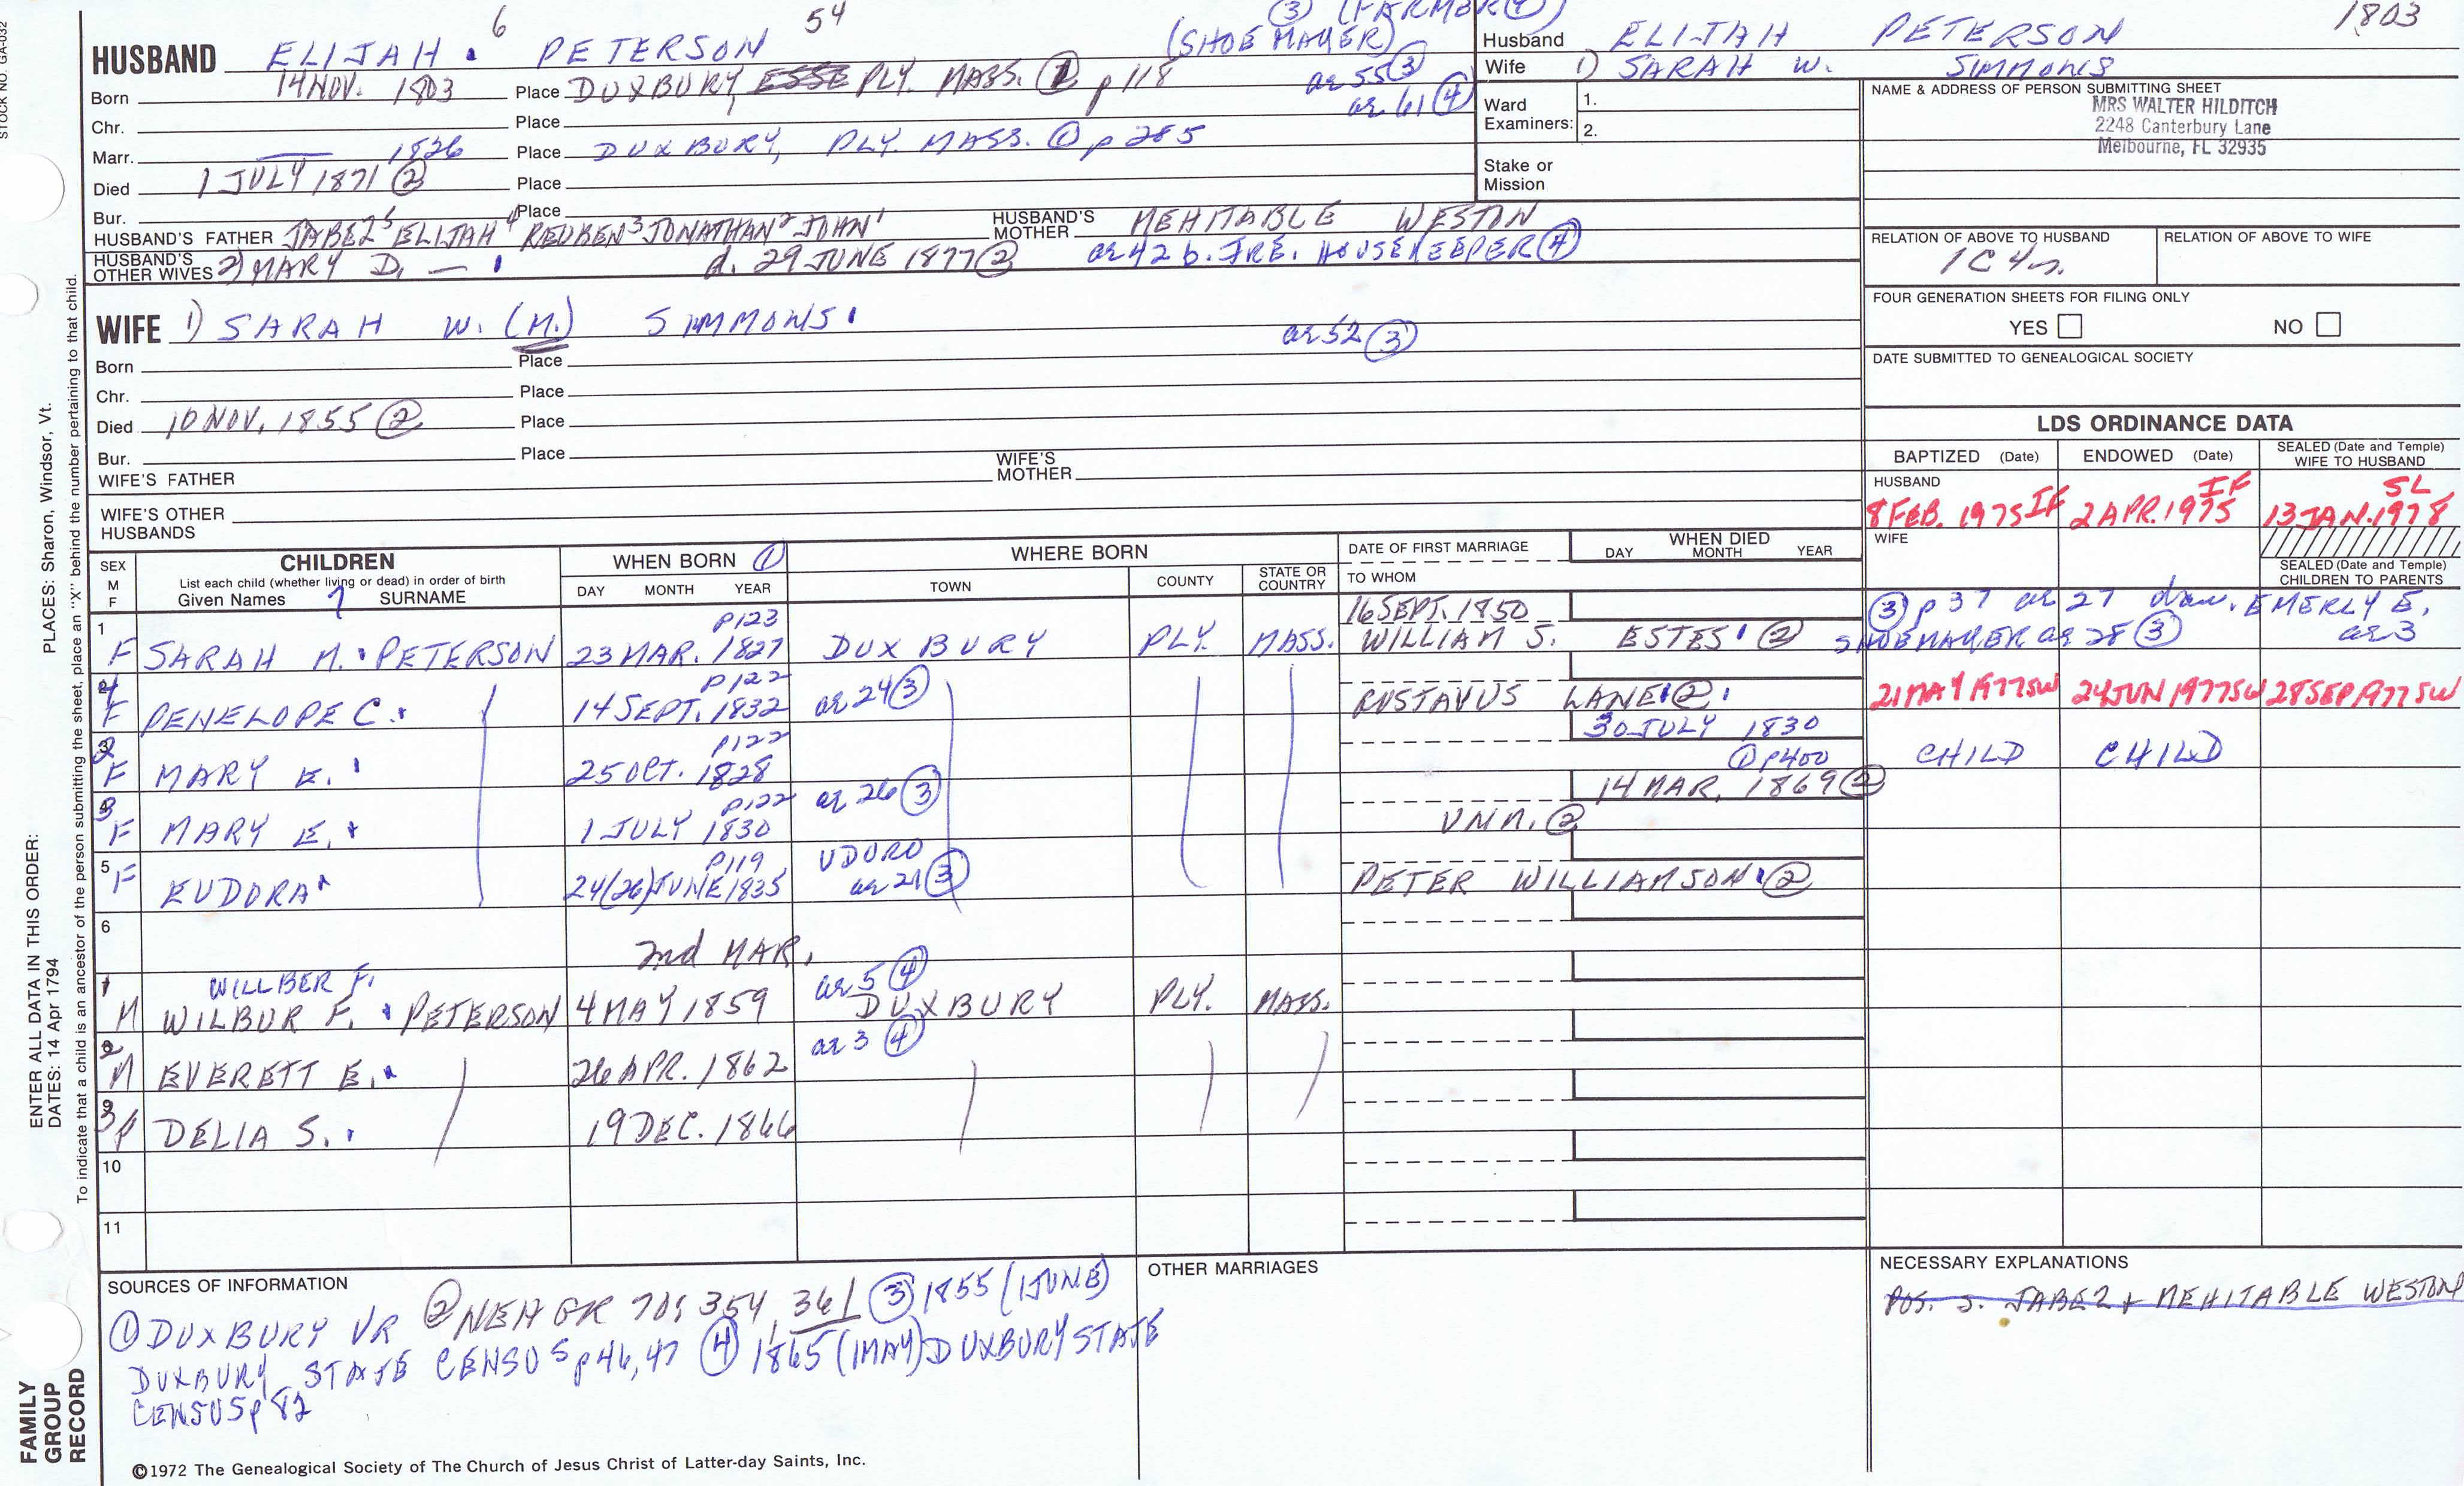 STOCK NO. GA-032
6 54 ③ (FARMER④) 1803
HUSBAND ELIJAH PETERSON (SHOE MAKER)
Born 14 NOV. 1803 Place DUXBURY, ESSE PLY. MASS. ① p 118 ae 55③
ae 61④
Chr. Place
Marr. — 1826 Place DUXBURY, PLY. MASS. ① p 285
Died 1 JULY 1871 ② Place
Bur. Place
HUSBAND'S FATHER JABEZ⁵ ELIJAH⁴ REUBEN³ JONATHAN² JOHN¹ HUSBAND'S MOTHER MEHITABLE WESTON
HUSBAND'S OTHER WIVES 2) MARY D. — d. 29 JUNE 1877② ae 42 b. IRE. HOUSEKEEPER④
WIFE 1) SARAH W. (M.) SIMMONS ae 52③
Born Place
Chr. Place
Died 10 NOV. 1855② Place
Bur. Place
WIFE'S FATHER WIFE'S MOTHER
WIFE'S OTHER HUSBANDS
Husband ELIJAH PETERSON
Wife 1) SARAH W. SIMMONS
Ward Examiners: 1.
2.
Stake or Mission
NAME & ADDRESS OF PERSON SUBMITTING SHEET
MRS WALTER HILDITCH
2248 Canterbury Lane
Melbourne, FL 32935
RELATION OF ABOVE TO HUSBAND RELATION OF ABOVE TO WIFE
1C 4r.
FOUR GENERATION SHEETS FOR FILING ONLY
YES NO
DATE SUBMITTED TO GENEALOGICAL SOCIETY
LDS ORDINANCE DATA
BAPTIZED (Date) ENDOWED (Date) SEALED (Date and Temple) WIFE TO HUSBAND
HUSBAND
8 FEB. 1975 IF 2 APR. 1975 IF 13 JAN. 1978 SL
WIFE
SEALED (Date and Temple) CHILDREN TO PARENTS
SEX M F CHILDREN WHEN BORN ① WHERE BORN DATE OF FIRST MARRIAGE WHEN DIED
List each child (whether living or dead) in order of birth DAY MONTH YEAR
Given Names SURNAME DAY MONTH YEAR TOWN COUNTY STATE OR COUNTRY TO WHOM
1 p123 16 SEPT. 1850 ③ p 37 ae 27 dau. EMERLY E.
F SARAH M. PETERSON 23 MAR. 1827 DUXBURY PLY. MASS. WILLIAM S. ESTES ② SHOEMAKER ae 28③ ae 3
4 p122 ae 24③
F PENELOPE C. 14 SEPT. 1832 RUSTAVUS LANE② 21 MAY 1977SW 24 JUN 1977SW 28 SEP 1977 SW
2 p122 30 JULY 1830
F MARY E. 25 OCT. 1828 ① p400 CHILD CHILD
3 p122 ae 26③ 14 MAR. 1869②
F MARY E. 1 JULY 1830 UNM.②
5 p119 UDORO
F EUDORA 24(26)JUNE 1835 ae 21③ PETER WILLIAMSON②
6 2nd MAR.
1 WILLBER F. ae 5④
M WILBUR F. PETERSON 4 MAY 1859 DUXBURY PLY. MASS.
2 ae 3④
M EVERETT E. 26 APR. 1862
3 F DELIA S. 19 DEC. 1866
10
11
SOURCES OF INFORMATION
① DUXBURY VR ② NEHGR 70; 354, 361 ③ 1855 (1JUNE)
DUXBURY STATE CENSUS p46, 47 ④ 1865 (1MAY) DUXBURY STATE
CENSUS p 82
OTHER MARRIAGES
NECESSARY EXPLANATIONS
POS. S. JABEZ + MEHITABLE WESTON
©1972 The Genealogical Society of The Church of Jesus Christ of Latter-day Saints, Inc.
ENTER ALL DATA IN THIS ORDER: PLACES: Sharon, Windsor, Vt.
DATES: 14 Apr 1794
To indicate that a child is an ancestor of the person submitting the sheet, place an "X" behind the number pertaining to that child.
FAMILY
GROUP
RECORD